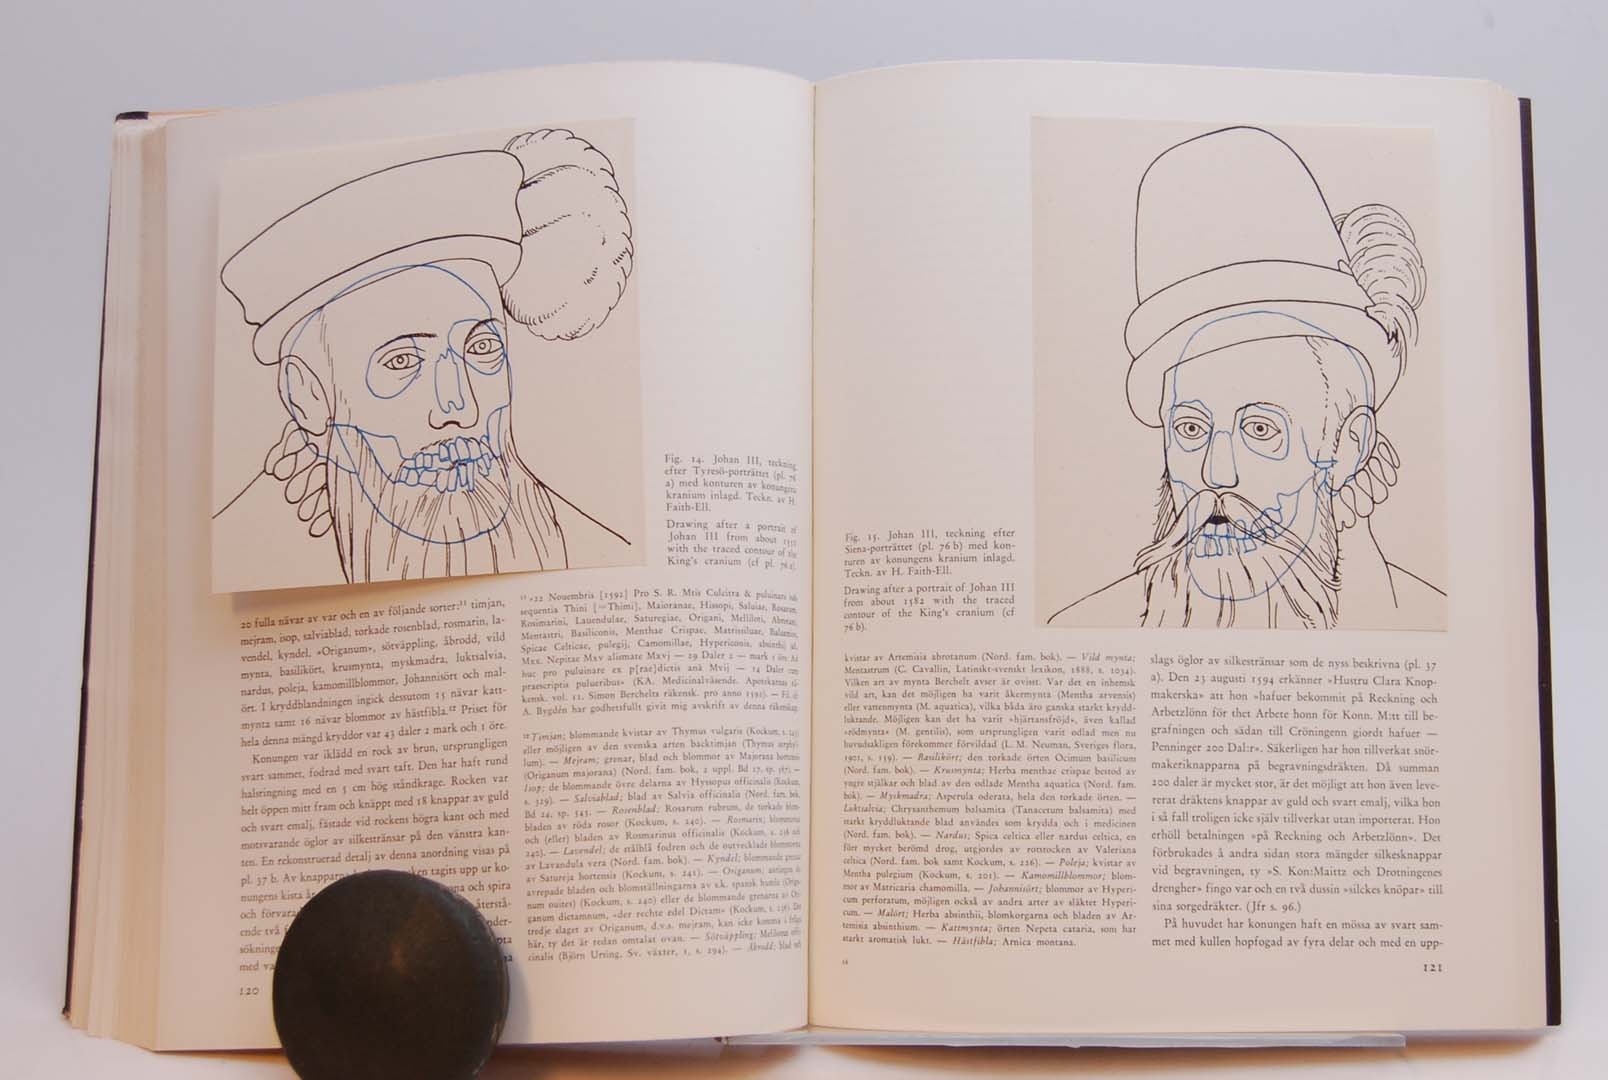 Fig. 14. Johan III, teckning
efter Tyresö-porträttet (pl. 76
a) med konturen av konungens
kranium inlagd. Teckn. av H.
Faith-Ell.
Drawing after a portrait of
Johan III from about
with the traced contour of the
King's cranium (cf pl. 76 a).
20 fulla nävar av var och en av följande sorter:¹¹ timjan,
mejram, isop, salviablad, torkade rosenblad, rosmarin, la-
vendel, kyndel, »Origanum», sötväppling, åbrodd, vild
mynta, basilikört, krusmynta, myskmadra, luktsalvia,
nardus, poleja, kamomillblommor, Johannisört och mal-
ört. I kryddblandningen ingick dessutom 15 nävar katt-
mynta samt 16 nävar blommor av hästfibla.¹² Priset för
hela denna mängd kryddor var 43 daler 2 mark och 1 öre.
Konungen var iklädd en rock av brun, ursprungligen
svart sammet, fodrad med svart taft. Den har haft rund
halsringning med en 5 cm hög ståndkrage. Rocken var
helt öppen mitt fram och knäppt med 18 knappar av guld
och svart emalj, fästade vid rockens högra kant och med
motsvarande öglor av silkesträn­sar på den vänstra kan-
ten. En rekonstruerad detalj av denna anordning visas på
pl. 37 b. Av knapparna tagits upp ur ko-
nungens kista och spira
och förvara återstå-
ende två
sökning
med va
120
¹¹ »22 Nouembris [1592] Pro S. R. Mtis Culcitra & puluinars sub
sequentia Thini [=Thimi], Maioranae, Hissopi, Saluiae, Rosarum,
Rosimarini, Lauendulae, Saturegiae, Origani, Melliloti, Abrotani,
Mentastri, Basiliconis, Menthae Crispae, Matrissiluae, Balsamitae,
Spicae Celticae, pulegij, Camomillae, Hypericonis, absinthij
Mxx. Nepitae Mxv alismate Mxvj — 29 Daler 2 — mark 1 öre. Ad
huc pro puluinare ex p[rae]dictis anä Mvij — 14 Daler cum
praescriptis pulueribus» (KA. Medicinalväsende. Apotekarnas rä-
kensk. vol. 11. Simon Berchelts räkensk. pro anno 1592). —
A. Bygdén har godhetsfullt givit mig avskrift av denna räkenskap.
¹² Timjan; blommande kvistar av Thymus vulgaris (Kockum, s.
eller möjligen av den svenska arten backtimjan (Thymus serphyl-
lum). — Mejram; grenar, blad och blommor av Majorana hortensis
(Origanum majorana) (Nord. fam. bok, 2 uppl. Bd 17, sp. 587). —
Isop; de blommande övre delarna av Hyssopus officinalis (Kockum,
s. 329). — Salviablad; blad av Salvia officinalis (Nord. fam. bok,
Bd 24, sp. 545. — Rosenblad; Rosarum rubrum, de torkade blom-
bladen av röda rosor (Kockum, s. 240). — Rosmarin; blommorna
och (eller) bladen av Rosmarinus officinalis (Kockum, s. 236 och
240). — Lavendel; de stålblå fodren och de outvecklade blommorna
av Lavandula vera (Nord. fam. bok). — Kyndel; blommande grenar
av Satureja hortensis (Kockum, s. 241). — Origanum; antingen de
avrepade bladen och blomställningarna av s.k. spansk humle (Origa-
num ouites) (Kockum, s. 240) eller de blommande grenarna av Ori-
ganum dictamnum, »der rechte edel Dictam» (Kockum, s. 236). Det
tredje slaget av Origanum, d.v.s. mejram, kan icke komma i fråga
här, ty det är redan omtalat ovan. — Sötväppling; Melilotus offi-
cinalis (Björn Ursing, Sv. växter, 1, s. 294). — Åbrodd; blad och
Fig. 15. Johan III, teckning efter
Siena-porträttet (pl. 76 b) med kon-
turen av konungens kranium inlagd.
Teckn. av H. Faith-Ell.
Drawing after a portrait of Johan III
from about 1582 with the traced
contour of the King's cranium (cf
76 b).
kvistar av Artemisia abrotanum (Nord. fam. bok). — Vild mynta;
Mentastrum (C. Cavallin, Latinskt-svenskt lexikon, 1888, s. 1034).
Vilken art av mynta Berchelt avser är ovisst. Var det en inhemsk
vild art, kan det möjligen ha varit åkermynta (Mentha arvensis)
eller vattenmynta (M. aquatica), vilka båda äro ganska starkt krydd-
luktande. Möjligen kan det ha varit »hjärtansfröjd», även kallad
»rödmynta» (M. gentilis), som ursprungligen varit odlad men nu
huvudsakligen förekommer förvildad (L. M. Neuman, Sveriges flora,
1901, s. 159). — Basilikört; den torkade örten Ocimum basilicum
(Nord. fam. bok). — Krusmynta; Herba menthae crispae bestod av
yngre stjälkar och blad av den odlade Mentha aquatica (Nord. fam.
bok). — Myskmadra; Asperula oderata, hela den torkade örten. —
Luktsalvia; Chrysanthemum balsamita (Tanacetum balsamita) med
starkt kryddluktande blad användes som krydda och i medicinen
(Nord. fam. bok). — Nardus; Spica celtica eller nardus celtica, en
förr mycket berömd drog, utgjordes av rotstocken av Valeriana
celtica (Nord. fam. bok samt Kockum, s. 226). — Poleja; kvistar av
Mentha pulegium (Kockum, s. 201). — Kamomillblommor; blom-
mor av Matricaria chamomilla. — Johannisört; blommor av Hyperi-
cum perforatum, möjligen också av andra arter av släktet Hyperi-
cum. — Malört; Herba absinthii, blomkorgarna och bladen av Ar-
temisia absinthium. — Kattmynta; örten Nepeta cataria, som har
starkt aromatisk lukt. — Hästfibla; Arnica montana.
slags öglor av silkesträn­sar som de nyss beskrivna (pl. 37
a). Den 23 augusti 1594 erkänner »Hustru Clara Knop-
makerska» att hon »hafuer bekommit på Reckning och
Arbetzlönn för thet Arbete honn för Konn. M:tt till be-
grafningen och sädan till Cröningenn giordt hafuer —
Penninger 200 Dal:r». Säkerligen har hon tillverkat snör-
makeriknapparna på begravningsdräkten. Då summan
200 daler är mycket stor, är det möjligt att hon även leve-
rerat dräktens knappar av guld och svart emalj, vilka hon
i så fall troligen icke själv tillverkat utan importerat. Hon
erhöll betalningen »på Reckning och Arbetzlönn». Det
förbrukades å andra sidan stora mängder silkesknappar
vid begravningen, ty »S. Kon:Maittz och Drotningenes
drengher» fingo var och en två dussin »silckes knöpar» till
sina sorgedräkter. (Jfr s. 96.)
På huvudet har konungen haft en mössa av svart sam-
met med kullen hopfogad av fyra delar och med en upp-
121